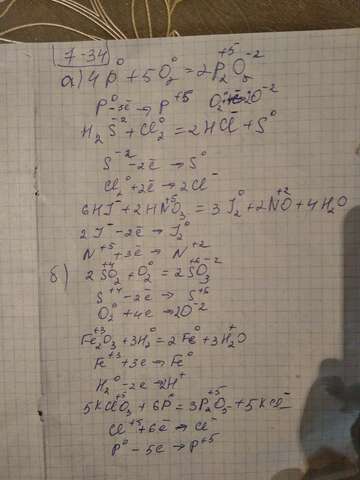 7-34
а) 4P⁰ + 5O₂⁰ = 2P₂⁺⁵O₅⁻²
P⁰ - 5e → P⁺⁵ O₂⁰ → 2O⁻²
H₂S⁻² + Cl₂⁰ = 2HCl⁻ + S⁰
S⁻² - 2e → S⁰
Cl₂⁰ + 2e → 2Cl⁻
6HJ⁻ + 2HN⁺⁵O₃ = 3J₂⁰ + 2N⁺²O + 4H₂O
2J⁻ - 2e → J₂⁰
N⁺⁵ + 3e → N⁺²
б) 2S⁺⁴O₂ + O₂⁰ = 2S⁺⁶O₃⁻²
S⁺⁴ - 2e → S⁺⁶
O₂⁰ + 4e → 2O⁻²
Fe₂⁺³O₃ + 3H₂⁰ = 2Fe⁰ + 3H₂⁺O
Fe⁺³ + 3e → Fe⁰
H₂⁰ - 2e → 2H⁺
5KCl⁺⁵O₃ + 6P⁰ = 3P₂⁺⁵O₅ + 5KCl⁻
Cl⁺⁵ + 6e → Cl⁻
P⁰ - 5e → P⁺⁵